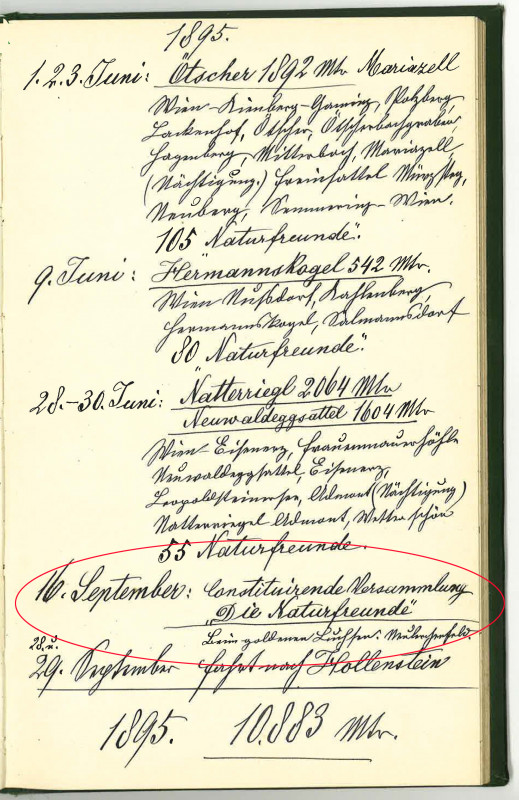 1895.
1. 2. 3. Juni: Ötscher 1892 Mtr Mariazell
Wien-Kienberg-Gaming, Polzberg,
Lackenhof, Ötscher, Ötscherbachgraben,
Hagenberg, Mitterbach, Mariazell
(Nächtigung.) Freinsattel Mürzsteg,
Neuberg, Semmering-Wien.
105 Naturfreunde".
9. Juni: Hermannskogel 542 Mtr.
Wien Nußdorf, Kahlenberg,
Hermannskogel, Salmannsdorf
80 Naturfreunde".
28.-30. Juni: Natterriegl 2064 Mtr
Neuwaldeggsattel 1604 Mtr
Wien-Eisenerz, Frauenmauerhöhle
Neuwaldeggsattel, Eisenerz,
Leopoldsteinersee, Admont (Nächtigung)
Natterriegel Admont, Wetter schön
55 Naturfreunde.
16. September: Constituirende Versammlung
„Die Naturfreunde"
Beim goldenen Luchsen: Neulerchenfeld.
28. u.
29. September Fahrt nach Hollenstein
1895. 10.883 Mtr.